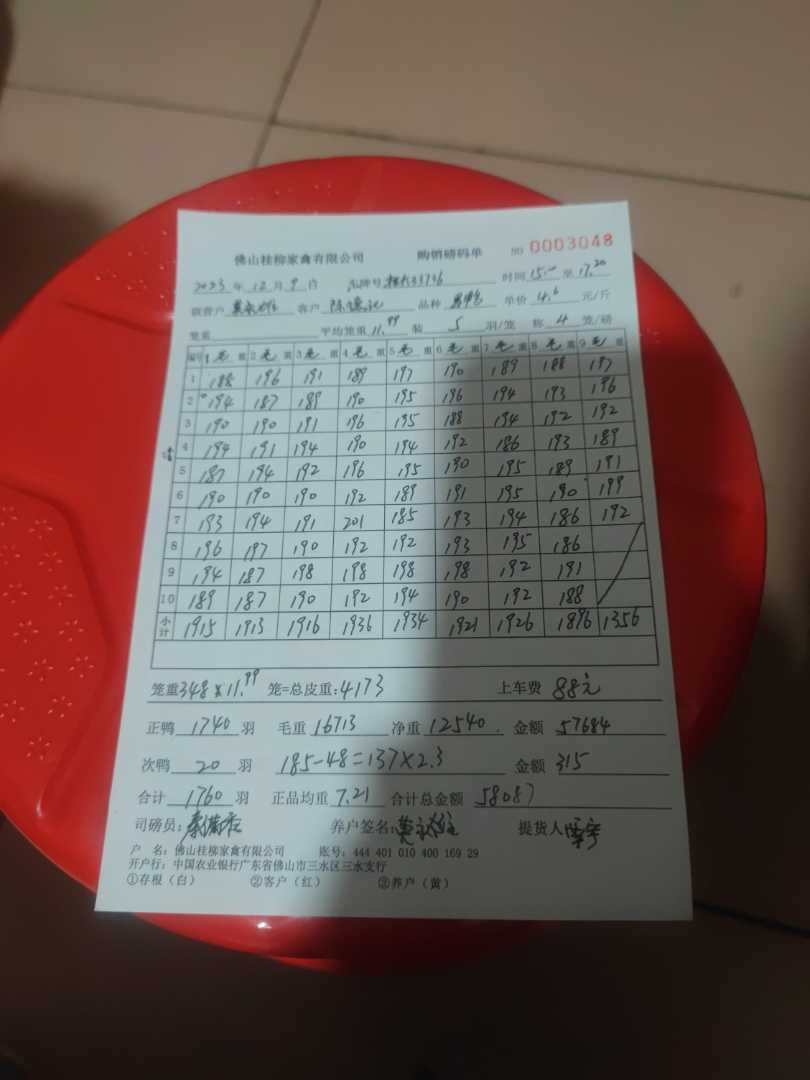 佛山桂柳家禽有限公司 购销磅码单 NO 0003048
2023 年 12 月 9 日 车牌号 时间 15.00 至 17.20
联营户 客户 陈德记 品种 单价 4.6 元/斤
笼重 平均笼重 11.99 装 5 羽/笼 称 4 笼/磅
编号 1 毛 重 2 毛 重 3 毛 重 4 毛 重 5 毛 重 6 毛 重 7 毛 重 8 毛 重 9 毛 重
1 188 196 191 189 197 190 189 188 197
2 194 187 189 190 195 196 194 193 196
3 190 190 191 196 195 188 194 192 192
4 194 191 194 190 194 192 186 193 189
5 187 194 192 196 195 190 195 189 191
6 190 190 190 192 189 191 195 190 199
7 193 194 191 201 185 193 194 186 192
8 196 197 190 192 192 193 195 186
9 194 187 198 198 198 198 192 191
10 189 187 190 192 194 190 192 188
小计 1915 1913 1916 1936 1934 1921 1926 1896 1356
笼重 348 × 11.99 笼=总皮重: 4173 上车费 88元
正鸭 1740 羽 毛重 16713 净重 12540 金额 57684
次鸭 20 羽 185-48=137×2.3 金额 315
合计 1760 羽 正品均重 7.21 合计总金额 58087
司磅员: 养户签名: 提货人
户 名: 佛山桂柳家禽有限公司 账号: 444 401 010 400 169 29
开户行: 中国农业银行广东省佛山市三水区三水支行
①存根(白) ②客户(红) ③养户(黄)